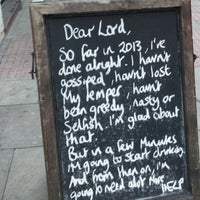 Dear Lord,
So far in 2013, i've
done alright. I havn't
gossiped, havn't lost
My temper, havn't
been greedy, nasty or
Selfish. i'm glad about
that.
But in a few Minutes
i'm going to start drinking
And from then on, i'm
going to need alot More
HELP